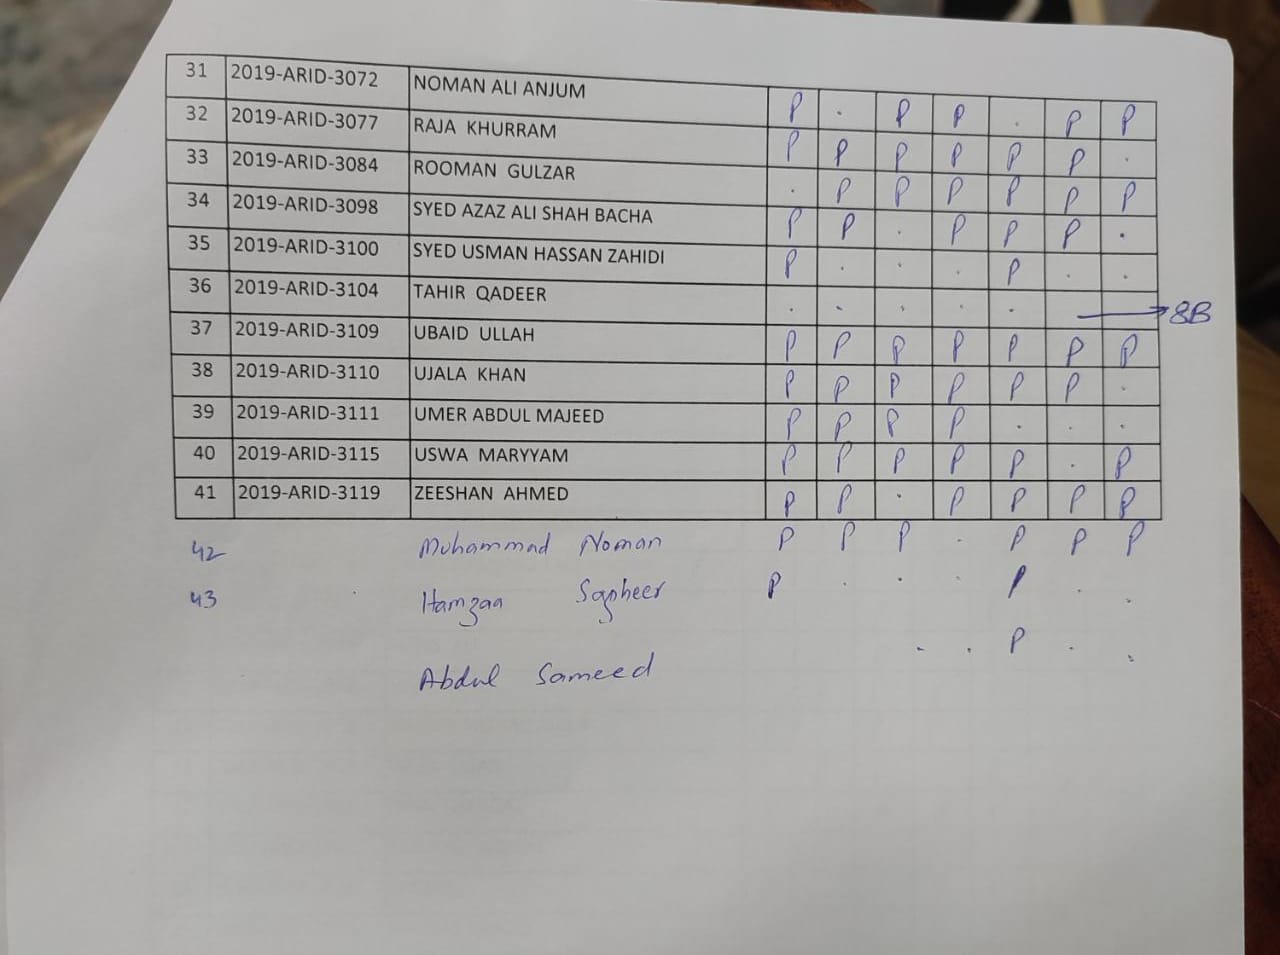 31 2019-ARID-3072 NOMAN ALI ANJUM P . P P . P P
32 2019-ARID-3077 RAJA KHURRAM P P P P P P .
33 2019-ARID-3084 ROOMAN GULZAR . P P P P P P
34 2019-ARID-3098 SYED AZAZ ALI SHAH BACHA P P . P P P .
35 2019-ARID-3100 SYED USMAN HASSAN ZAHIDI P . . . P . .
36 2019-ARID-3104 TAHIR QADEER . . . . . → 8B
37 2019-ARID-3109 UBAID ULLAH P P P P P P P
38 2019-ARID-3110 UJALA KHAN P P P P P P .
39 2019-ARID-3111 UMER ABDUL MAJEED P P P P . . .
40 2019-ARID-3115 USWA MARYYAM P P P P P . P
41 2019-ARID-3119 ZEESHAN AHMED P P . P P P P
42 Muhammad Noman P P P . P P P
43 Hamzaa Sagheer P . . . P . .
Abdul Sameed . . P . .